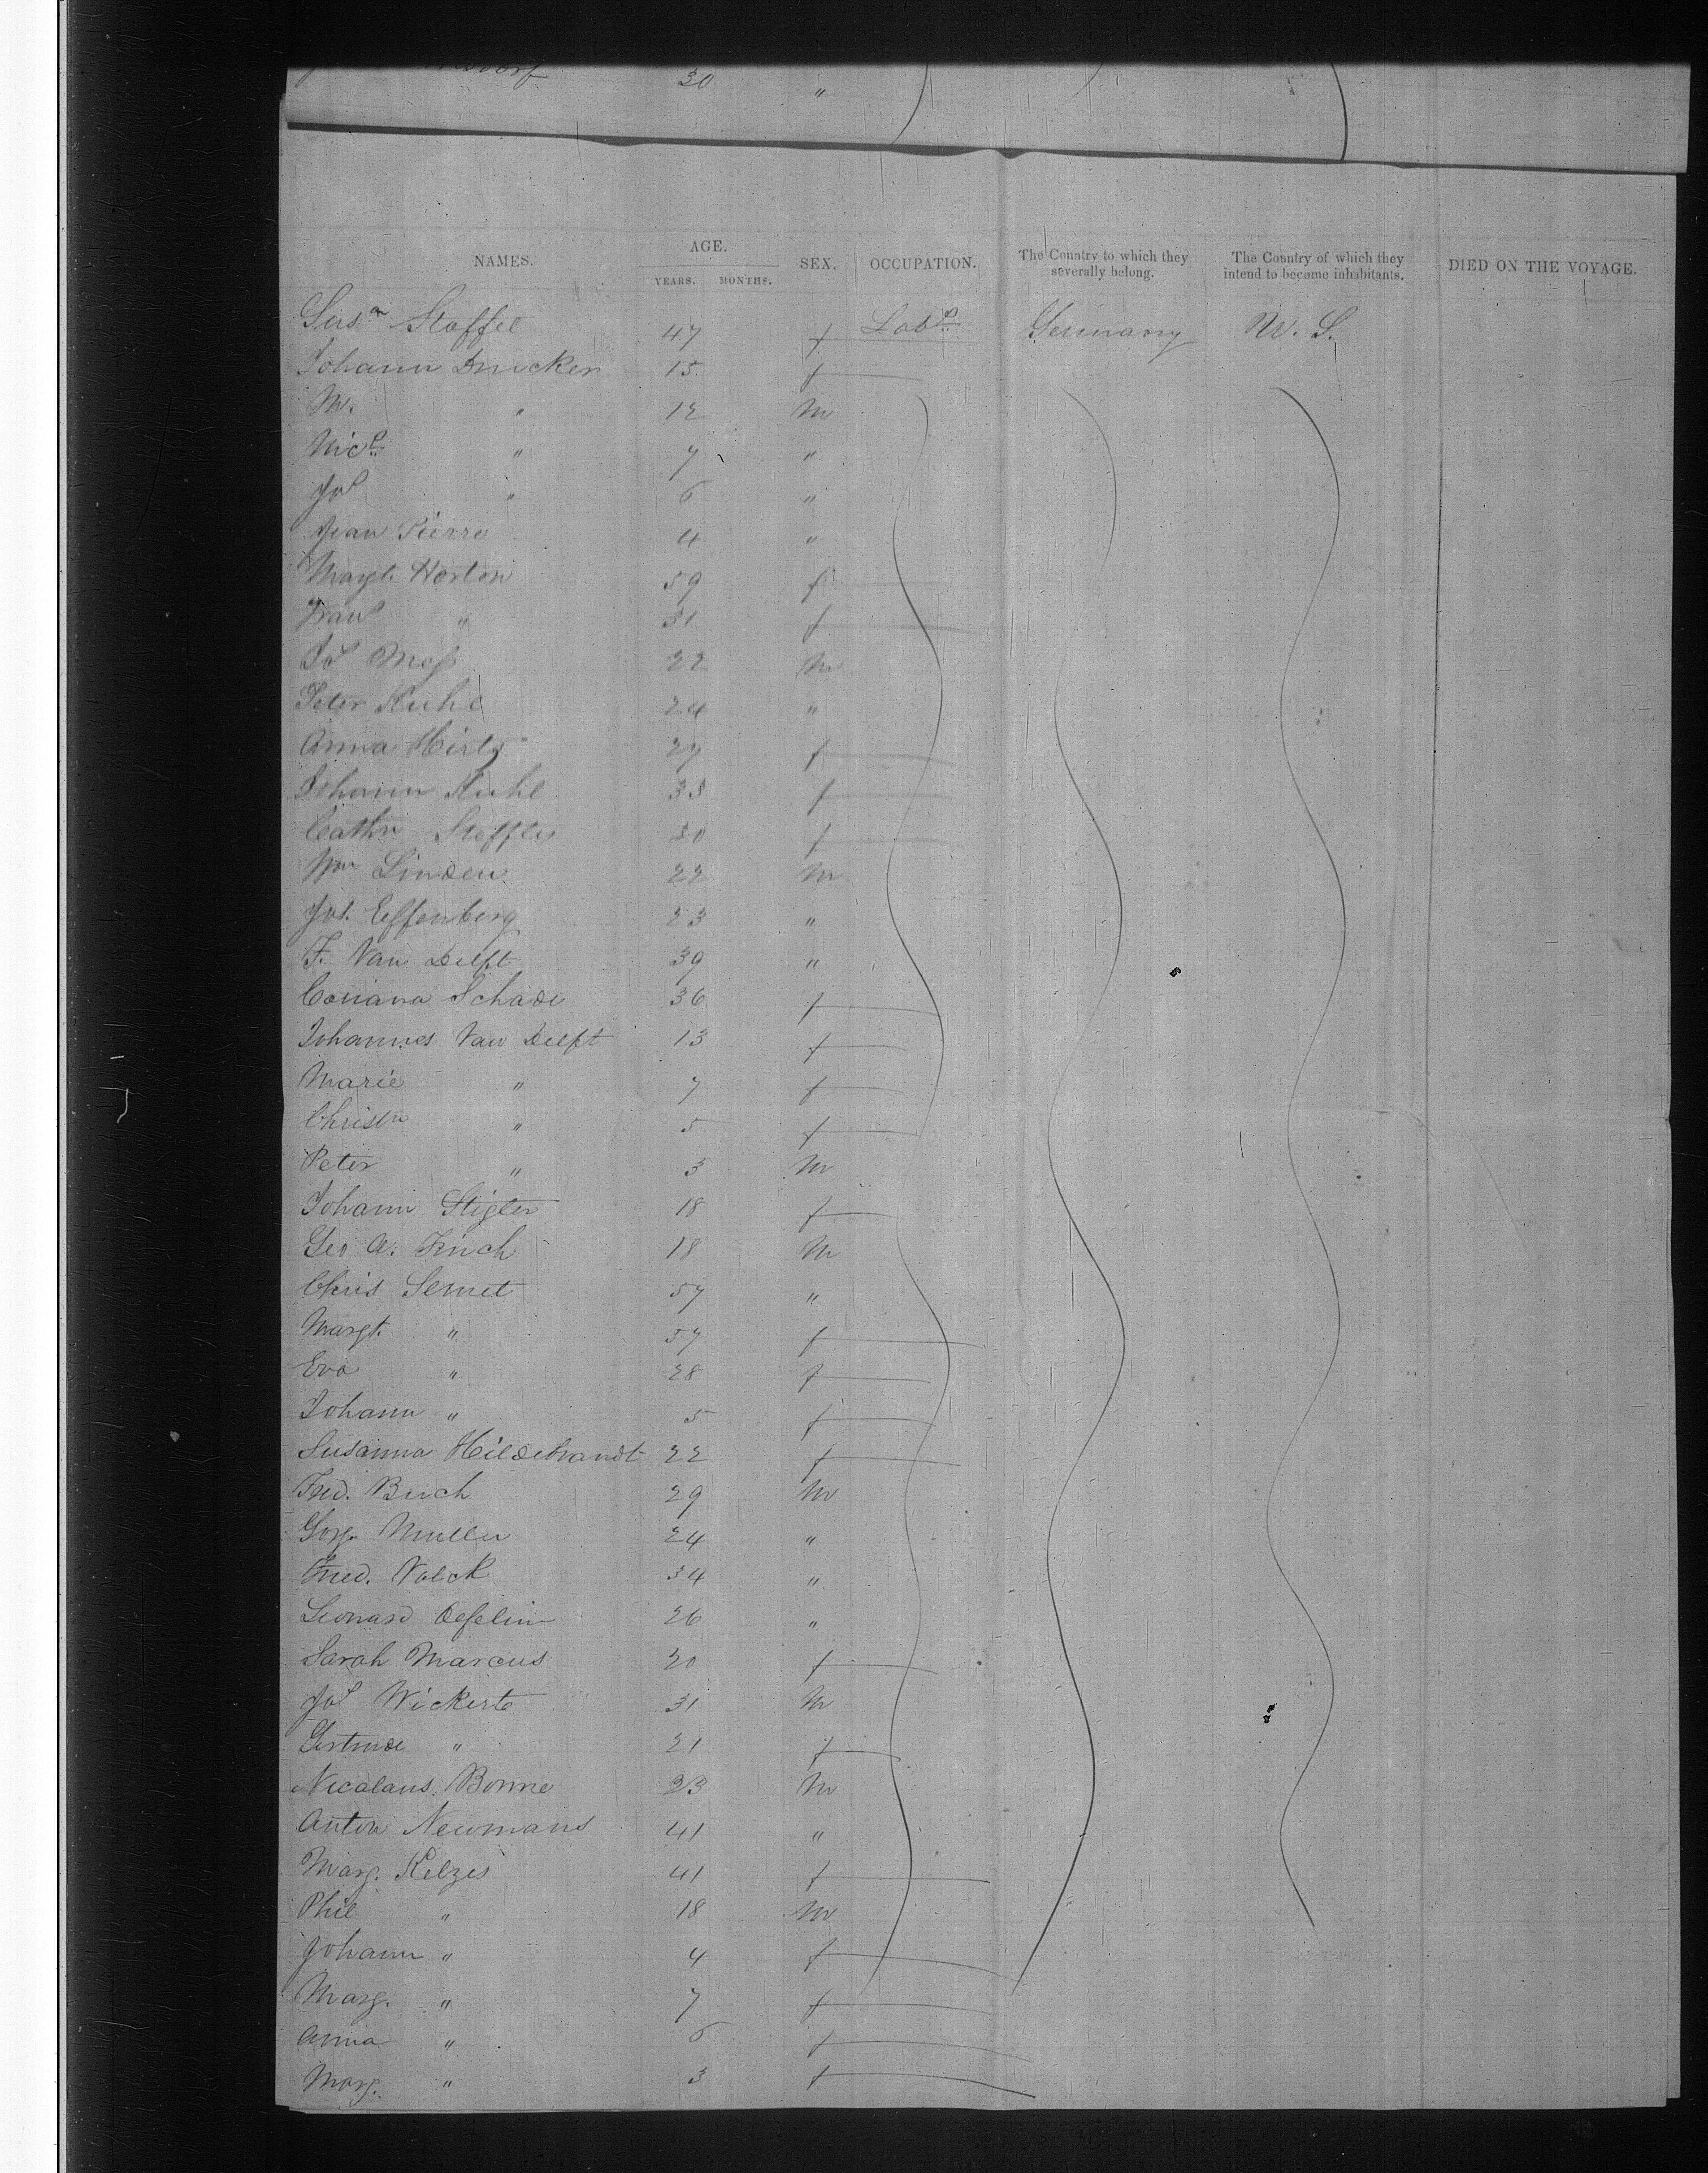 30 "
NAMES. AGE. YEARS. MONTHS. SEX. OCCUPATION. The Country to which they severally belong. The Country of which they intend to become inhabitants. DIED ON THE VOYAGE.
Susan Stoffel 47 f Labr Germany U. S.
Johann Drucker 15 f
M. " 12 M
Nics " 7 "
Jos " 6 "
Jean Pierre 4 "
Margt. Horton 59 f
" 31 f
22 M
Peter Kuhl 24 "
Anna Hirtz 27 f
Johann Kuhl 33 f
Cathn Stoffles 30 f
Wm Linden 22 M
Jos. Effenberg 23 "
F. Van Delft 39 "
Schade 36 f
Johannes Van Delft 13 f
Marie " 7 f
Christn " 5 f
Peter " 3 M
Johann Stigler 18 f
Geo A. Finch 18 M
Chris Semet 57 "
Margt. " 57 f
Eva " 28 f
Johann " 5 f
Susanna Hildebrandt 22 f
Fred. Buch 29 M
Gorg Muller 24 "
Fred. Volck 34 "
Leonard 26 "
Sarah Marcus 20 f
Jos Wickert 31 M
Gertrude " 21 f
Nicalaus Bonne 23 M
Anton Newmans 41 "
Marg. Kelzes 41 f
Phil " 18 M
Johann " 4 f
Marg. " 7 f
Anna " 6 f
Marg. " 3 f